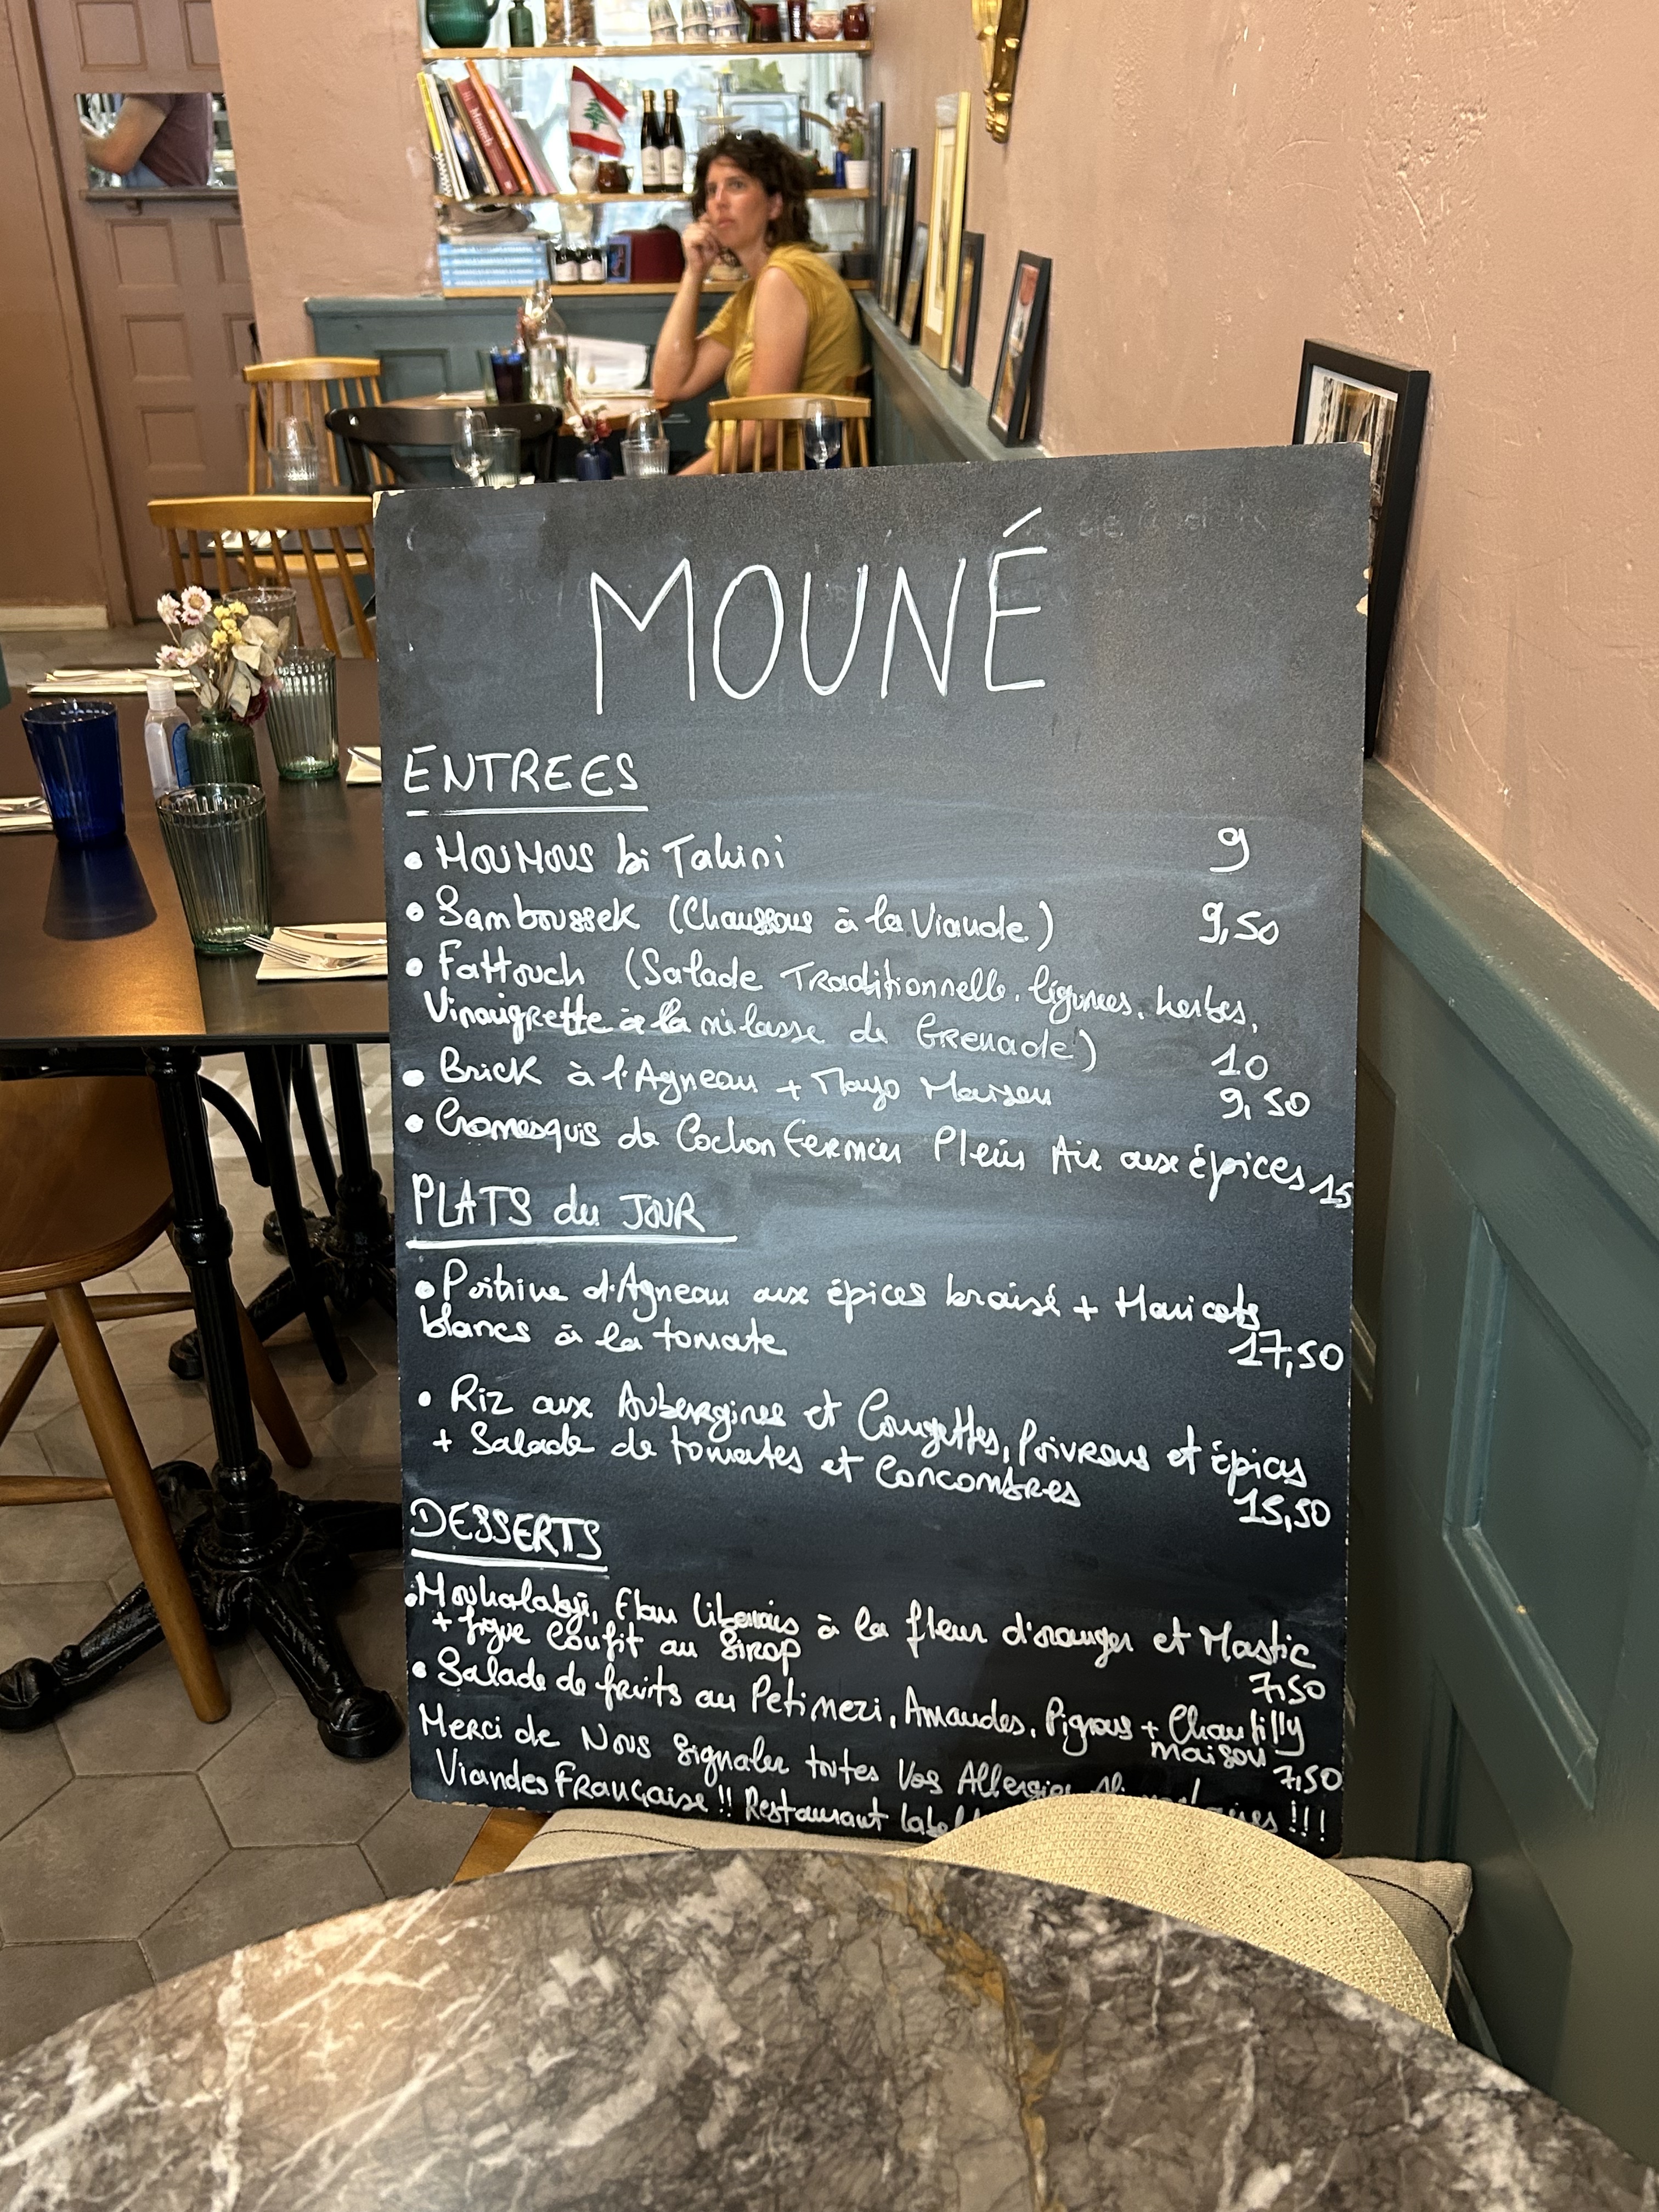 MOUNÉ
ENTREES
• HOUMOUS bi Tahini 9
• Samboussek (Chaussons à la Viande) 9,50
• Fattouch (Salade Traditionnelle, légumes, herbes,
Vinaigrette à la mélasse de Grenade) 10
• Brick à l'Agneau + Mayo Maison 9,50
• Cromesquis de Cochon fermier Plein Air aux épices 15
PLATS du JOUR
• Poitrine d'Agneau aux épices braisé + Haricots
blancs à la tomate 17,50
• Riz aux Aubergines et Courgettes, Poivrons et épices
+ Salade de tomates et Concombres 15,50
DESSERTS
• Mouhalabji, Flan Libanais à la fleur d'oranger et Mastic
+ figue confit au Sirop 7,50
• Salade de fruits au Petimezi, Amandes, Pignons + Chantilly
maison 7,50
Merci de Nous Signaler toutes Vos Allergies
Viandes Française !! Restaurant !!!